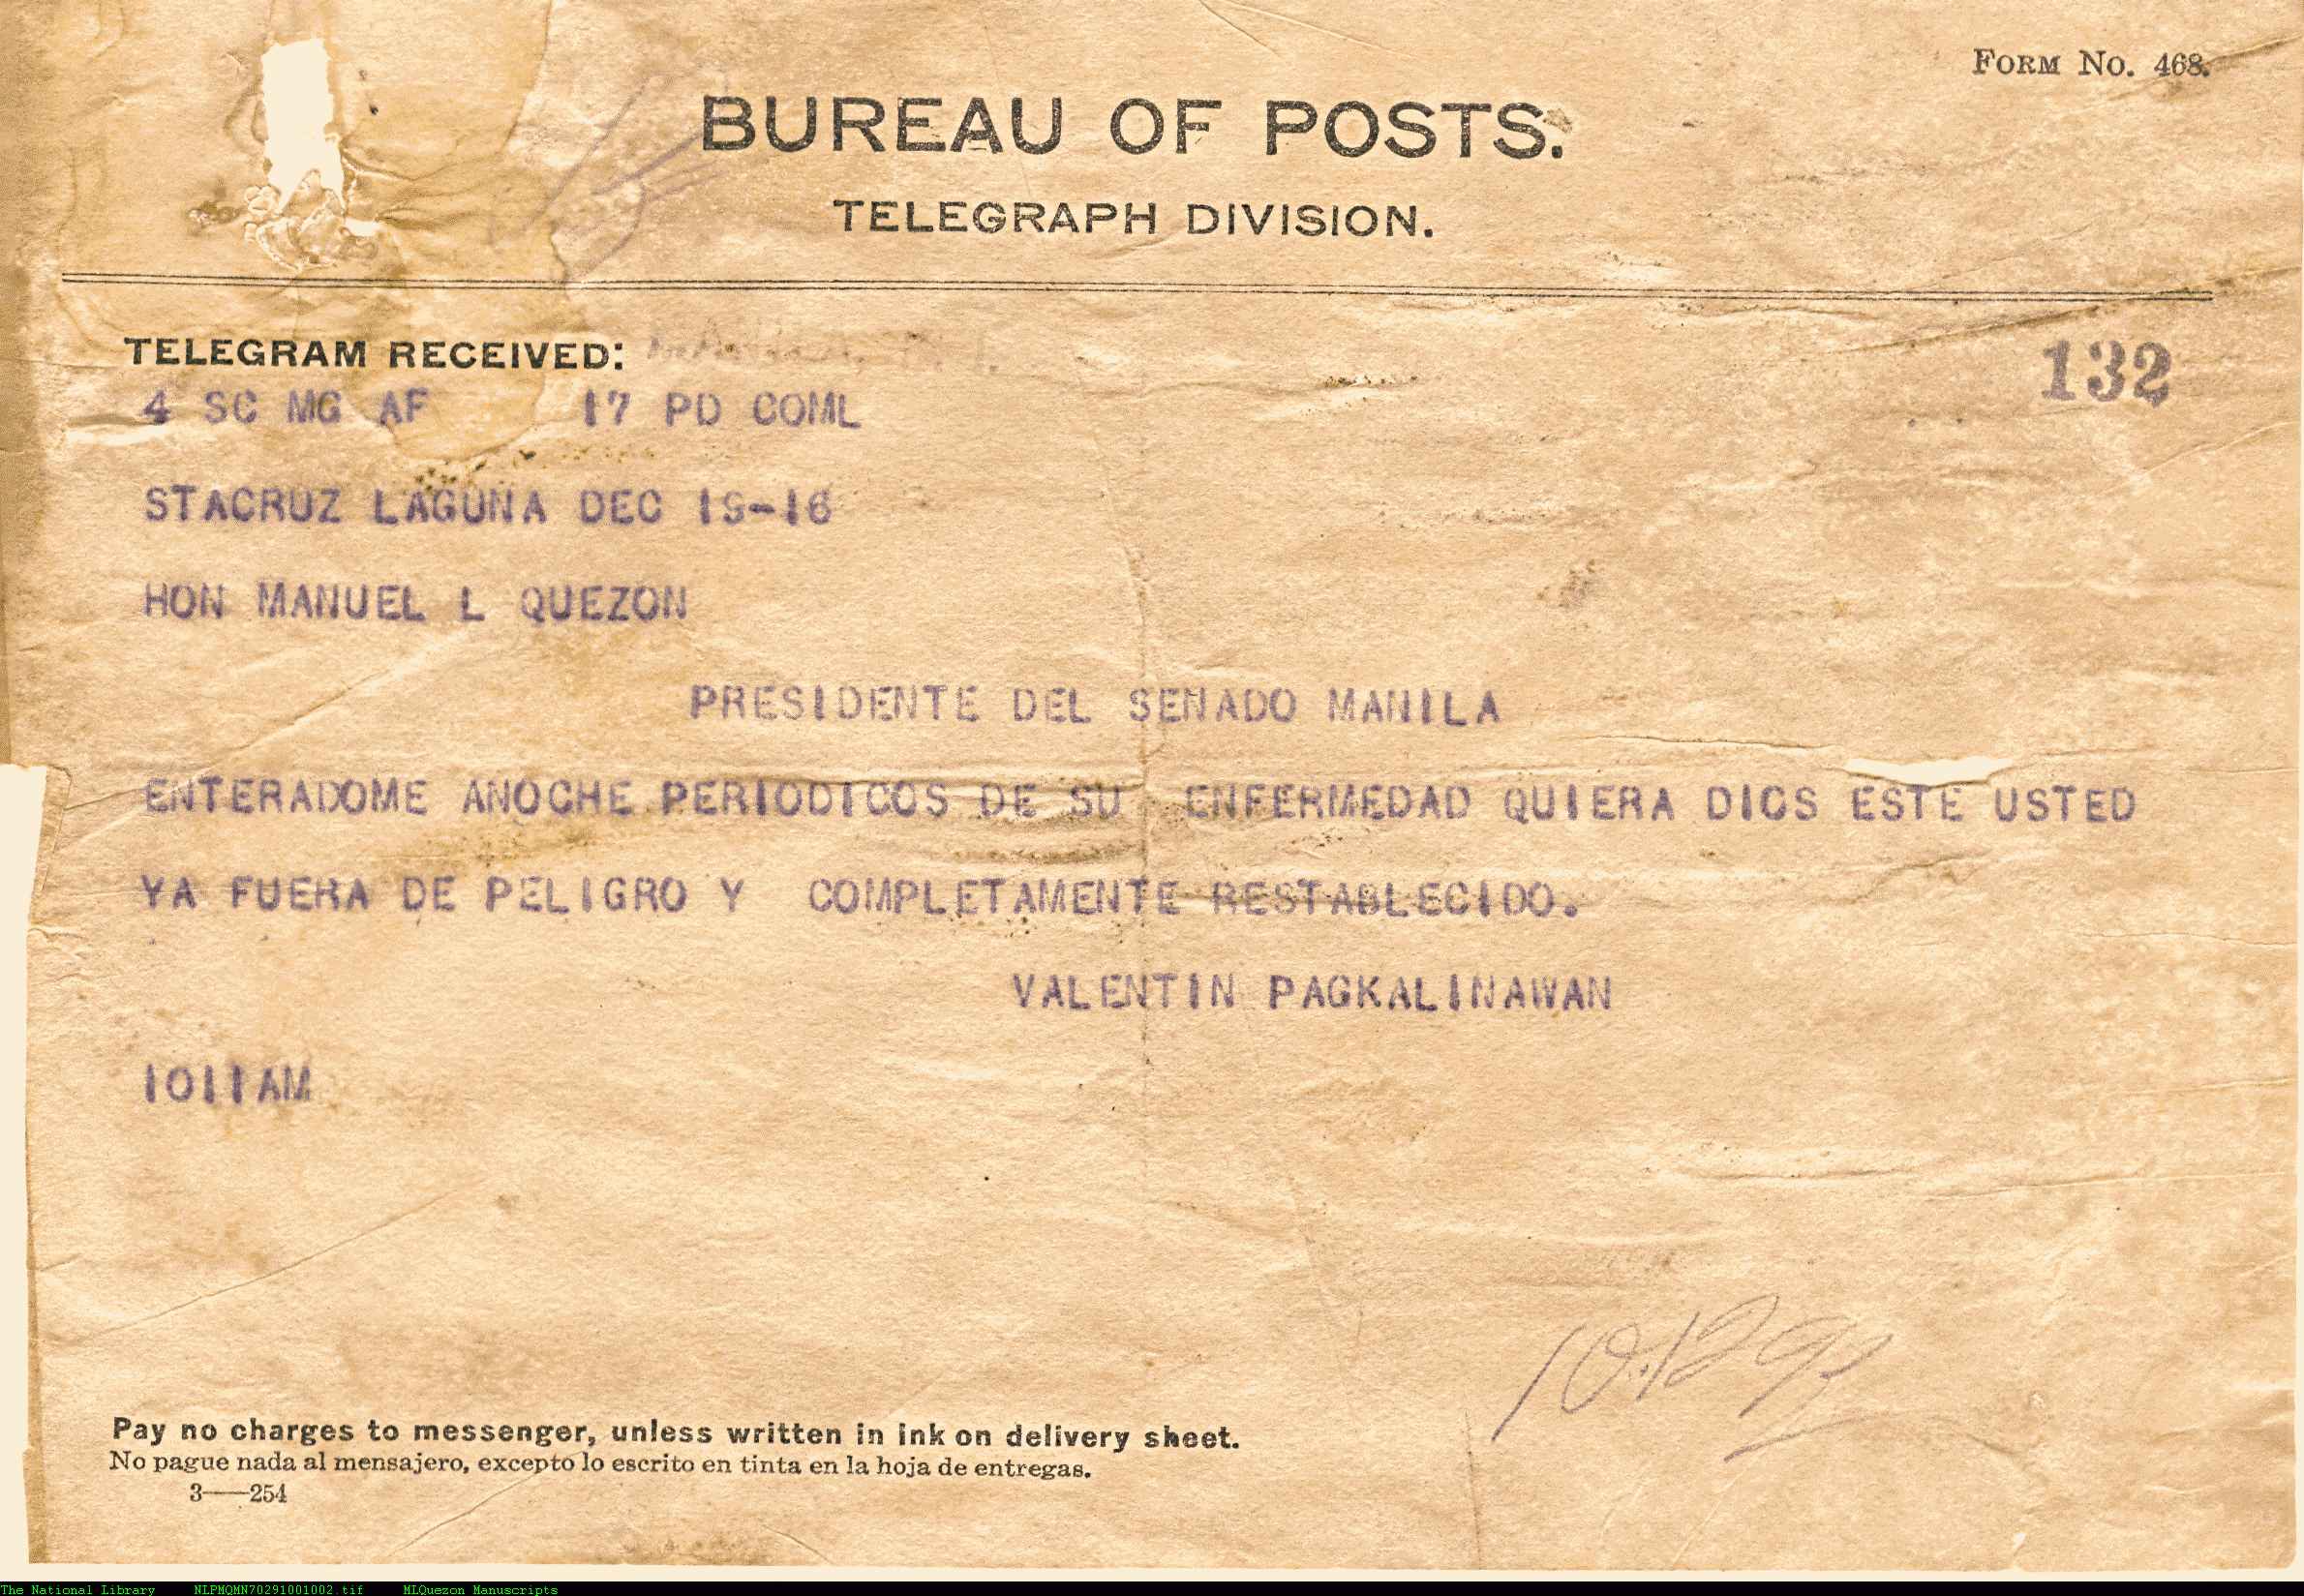 FORM NO. 468.
BUREAU OF POSTS.
TELEGRAPH DIVISION.
TELEGRAM RECEIVED:
132
4 SC MG AF 17 PD COML
STACRUZ LAGUNA DEC 19-16
HON MANUEL L QUEZON
PRESIDENTE DEL SENADO MANILA
ENTERADOME ANOCHE PERIODICOS DE SU ENFERMEDAD QUIERA DIOS ESTE USTED
YA FUERA DE PELIGRO Y COMPLETAMENTE RESTABLECIDO.
VALENTIN PAGKALINAWAN
1011AM
Pay no charges to messenger, unless written in ink on delivery sheet.
No pague nada al mensajero, excepto lo escrito en tinta en la hoja de entregas.
3—254
The National Library NLPMQMN70291001002.tif MLQuezon Manuscripts